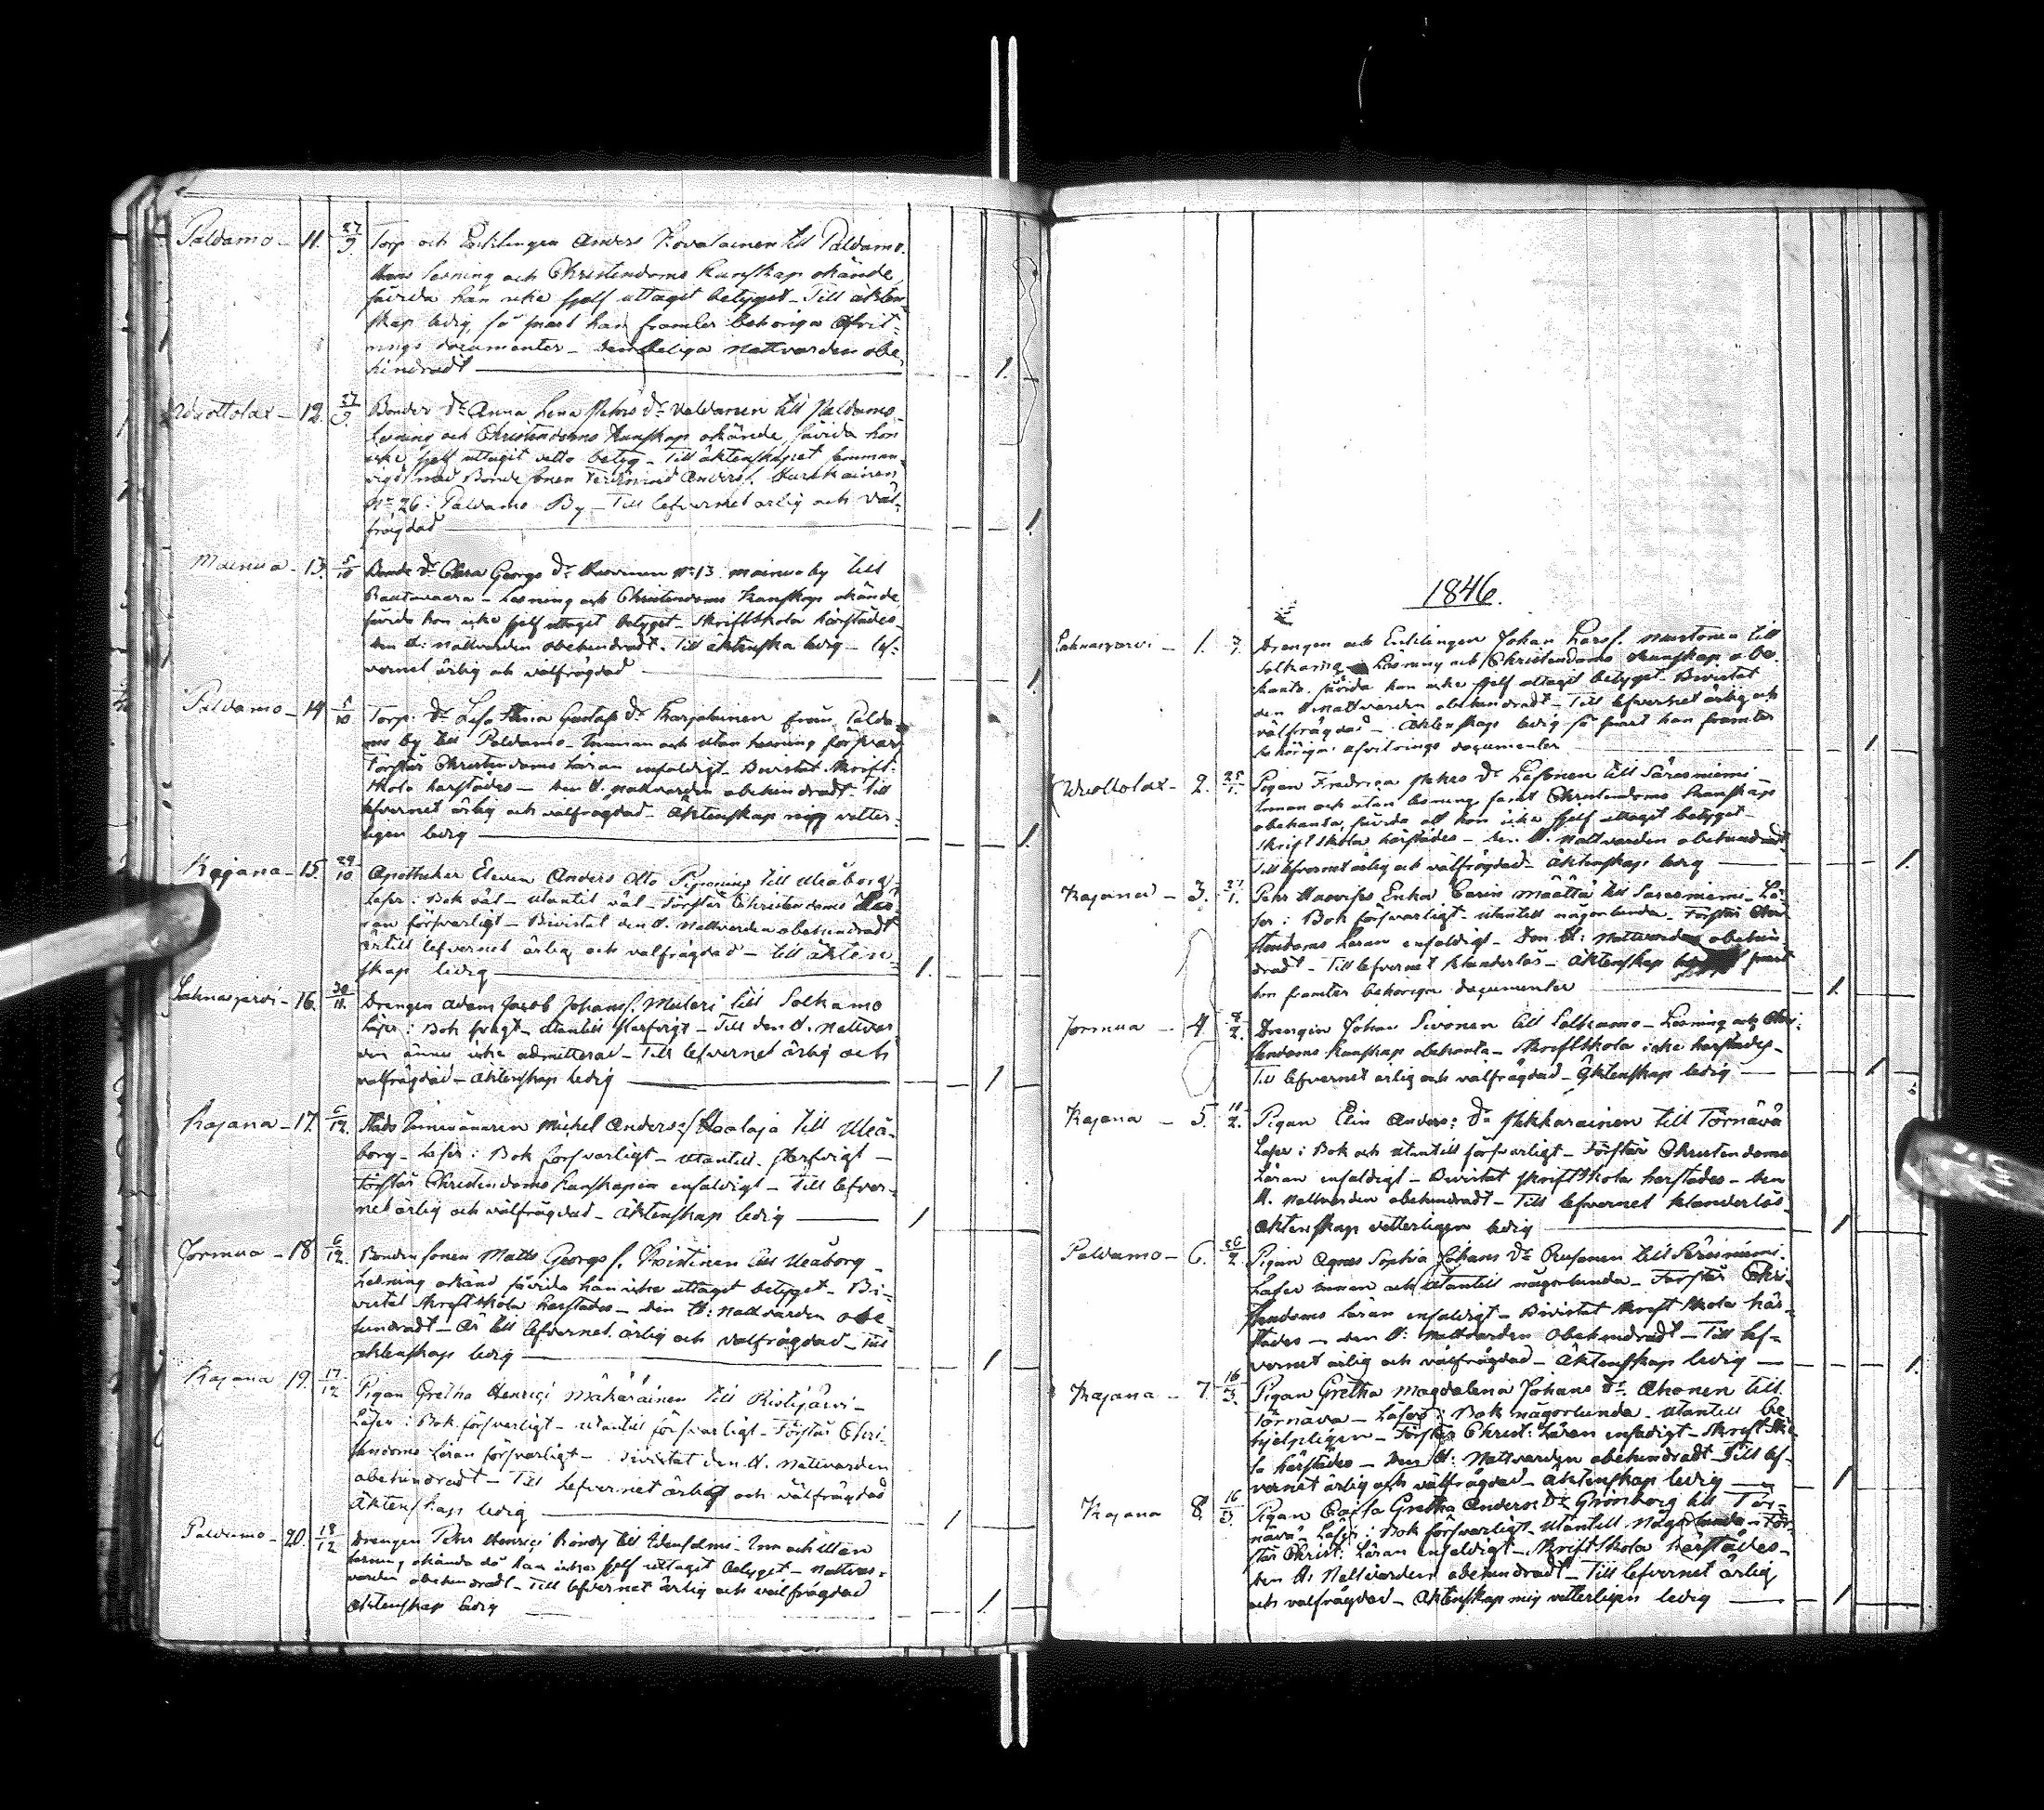 Paldamo - 11. 27/9. Torp. och Enklingen Anders Kovalainen till Paldamo.
Hans läsning och Christendoms kunskap okände
såvida han icke sjelf uttaget betyget - Till äkten-
skap ledig, så snart han framter behöriga afvit-
rings documenter - den heliga Nattvarden obe-
hindradt 1.
Wuottolax - 12. 27/9. Bonde Dr Anna Lena Pehrs Dr till Paldamo -
Läsning och Christendoms kunskap okände, såvida hon
icke sjelf uttagit detta betyg - Till äktenskapet samman-
vigd med Bonde sonen Ferdinand Anders s.
No 26. Paldamo By - Till lefvernet ärlig och väl-
frägdad 1.
Mainua - 13. 5/10 Bonde Dr Clara Georgs Dr No 13. Mainua by till
Rautavaara - Läsning och Christendoms kunskap okände,
såvida hon icke sjelf uttaget betyget - Skriftskola härstädes -
den H. Nattvarden obehindradt. Till äktenska ledig - lef-
vernet ärlig och välfrägdad 1.
Paldamo - 14 5/10 Torp. Dr Lisa Maria Gustafs Dr Karjalainen från Palda-
mo by till Paldamo - Innan och utan läsning försvar.
Förstår Christendoms Läran enfaldigt - Bivistat Skrift-
skola härstädes - den H. Nattvarden obehindradt - till
lefvernet ärlig och välfrägdad - Äktenskap mig vitter-
ligen ledig 1.
Kajana - 15. 29/10 Apotheker Eleven Anders Otto till Uleåborg -
Läser i Bok väl - utantill väl - Förstår Christendoms Lä-
ran försvarligt - Bivistat den H. Nattvarden obehindradt
är till lefvernet ärlig och välfrägdad - till äkten-
skap ledig 1.
Lahnasjärvi - 16. 30/11. Drengen Adam Jacob Johans s. Meileri till Sotkamo
Läser i Bok svagt - utantill - Till den H. Nattvar-
den ännu icke admitterad - Till lefvernet ärlig och
välfrägdad - Äktenskap ledig 1
Kajana - 17. 6/12. Michel Anders s. till Uleå-
borg - Läser i Bok försvarligt - utantill -
Förstår Christendoms kunskapen enfaldigt - Till lefver-
net ärlig och välfrägdad - Äktenskap ledig 1
Jormua - 18 6/12. Bonden sonen Matts Georgs s. till Uleåborg -
Läsning okänd såvida han icke uttaget betyget - Bi-
vistat Skriftskola härstädes - den H. Nattvarden obe-
hindradt - Är till lefvernet ärlig och välfrägdad - Till
äktenskap ledig 1
Kajana 19. 17/12 Pigan Gretha Henrici Mäkäräinen till Ristijärvi -
Läser i Bok försvarligt - utantill försvarligt - Förstår Chri-
stendoms Läran försvarligt - Bivistat den H. Nattvarden
obehindradt - Till Lefvernet ärlig och välfrägdad
Äktenskap ledig 1
Paldamo - 20. 18/12 Drengen Pehr Henrici till Idensalmi - Inn och utan
läsning okända då han icke sjelf uttaget betyget - Nattvar-
varden obehindradt - Till lefvernet ärlig och välfrägdad
Äktenskap ledig 1.
1846.
Lahnasjärvi - 1. Drengen och Enklingen Johan Lars s. Mustonen till
Sotkamo - Läsning och Christendoms kunskap obe-
kante, såvida han icke sjelf uttaget betyget. Bivistat
den H Nattvarden obehindradt - Till lefvernet ärlig och
välfrägdad - Äktenskap ledig så snart han framter
behöriga afvitrings documenter 1
Wuottolax - 2. 25/1. Pigan Fredrica Pehrs Dr till Säresniemi -
Innan och utan läsning samt Christendoms kunskap
obekanta, såvida att hon icke sjelf uttaget betyget -
Skriftskola härstädes - den H. Nattvarden obehindradt
Till lefvernet ärlig och välfrägdad - Äktenskap ledig 1.
Kajana - 3. 27/1. Pehr Enka Carin Määttä till Säresniemi - Lä-
ser i Bok försvarligt - utantill någorlunda - Förstår Chri-
stendoms Läran enfaldigt - Den H. Nattvarden obehin-
dradt - Till lefvernet klanderlös - Äktenskap snart
hon framter behöriga documenter 1.
Jormua - 4. 8/2. Drengen Johan Sivonen till Sotkamo - Läsning och Chri-
stendoms kunskap obekanta - Skriftskola icke härstädes -
Till lefvernet ärlig och välfrägdad - Äktenskap ledig 1
Kajana - 5. 10/2. Pigan Elin Anders Dr Pekkarainen till Törnävä
Läser i Bok och utantill försvarligt - Förstår Christendoms
Läran enfaldigt - Bivistat Skriftskola härstädes - den
H. Nattvarden obehindradt - Till lefvernet klanderlös -
Äktenskap vetterligen ledig 1
Paldamo - 6. 26/2 Pigan Agnes Sophia Johans Dr till Säresniemi.
Läser innan och utantill någorlunda - Förstår Chri-
stendoms läran enfaldigt - Bivistat Skriftskola här-
städes - den H. Nattvarden obehindradt - Till lef-
vernet ärlig och välfrägdad - Äktenskap ledig 1.
Kajana - 7. 16/3. Pigan Gretha Magdalena Johans Dr Ahonen till
Törnävä - Läser i Bok någorlunda - utantill be-
hjelpligen - Förstår Christ: Läran enfaldigt - Skriftsko-
la härstädes - Den H. Nattvarden obehindradt - Till lef-
vernet ärlig och välfrägdad - Äktenskap ledig 1
Kajana 8. 16/3. Pigan Cajsa Gretha Anders Dr Grönborg till Tör-
nävä - Läser i Bok försvarligt - utantill någorlunda - För-
står Christ: Läran enfaldigt - Skriftskola härstädes -
den H. Nattvarden obehindradt - Till lefvernet ärlig
och välfrägdad - Äktenskap mig vetterligen ledig 1